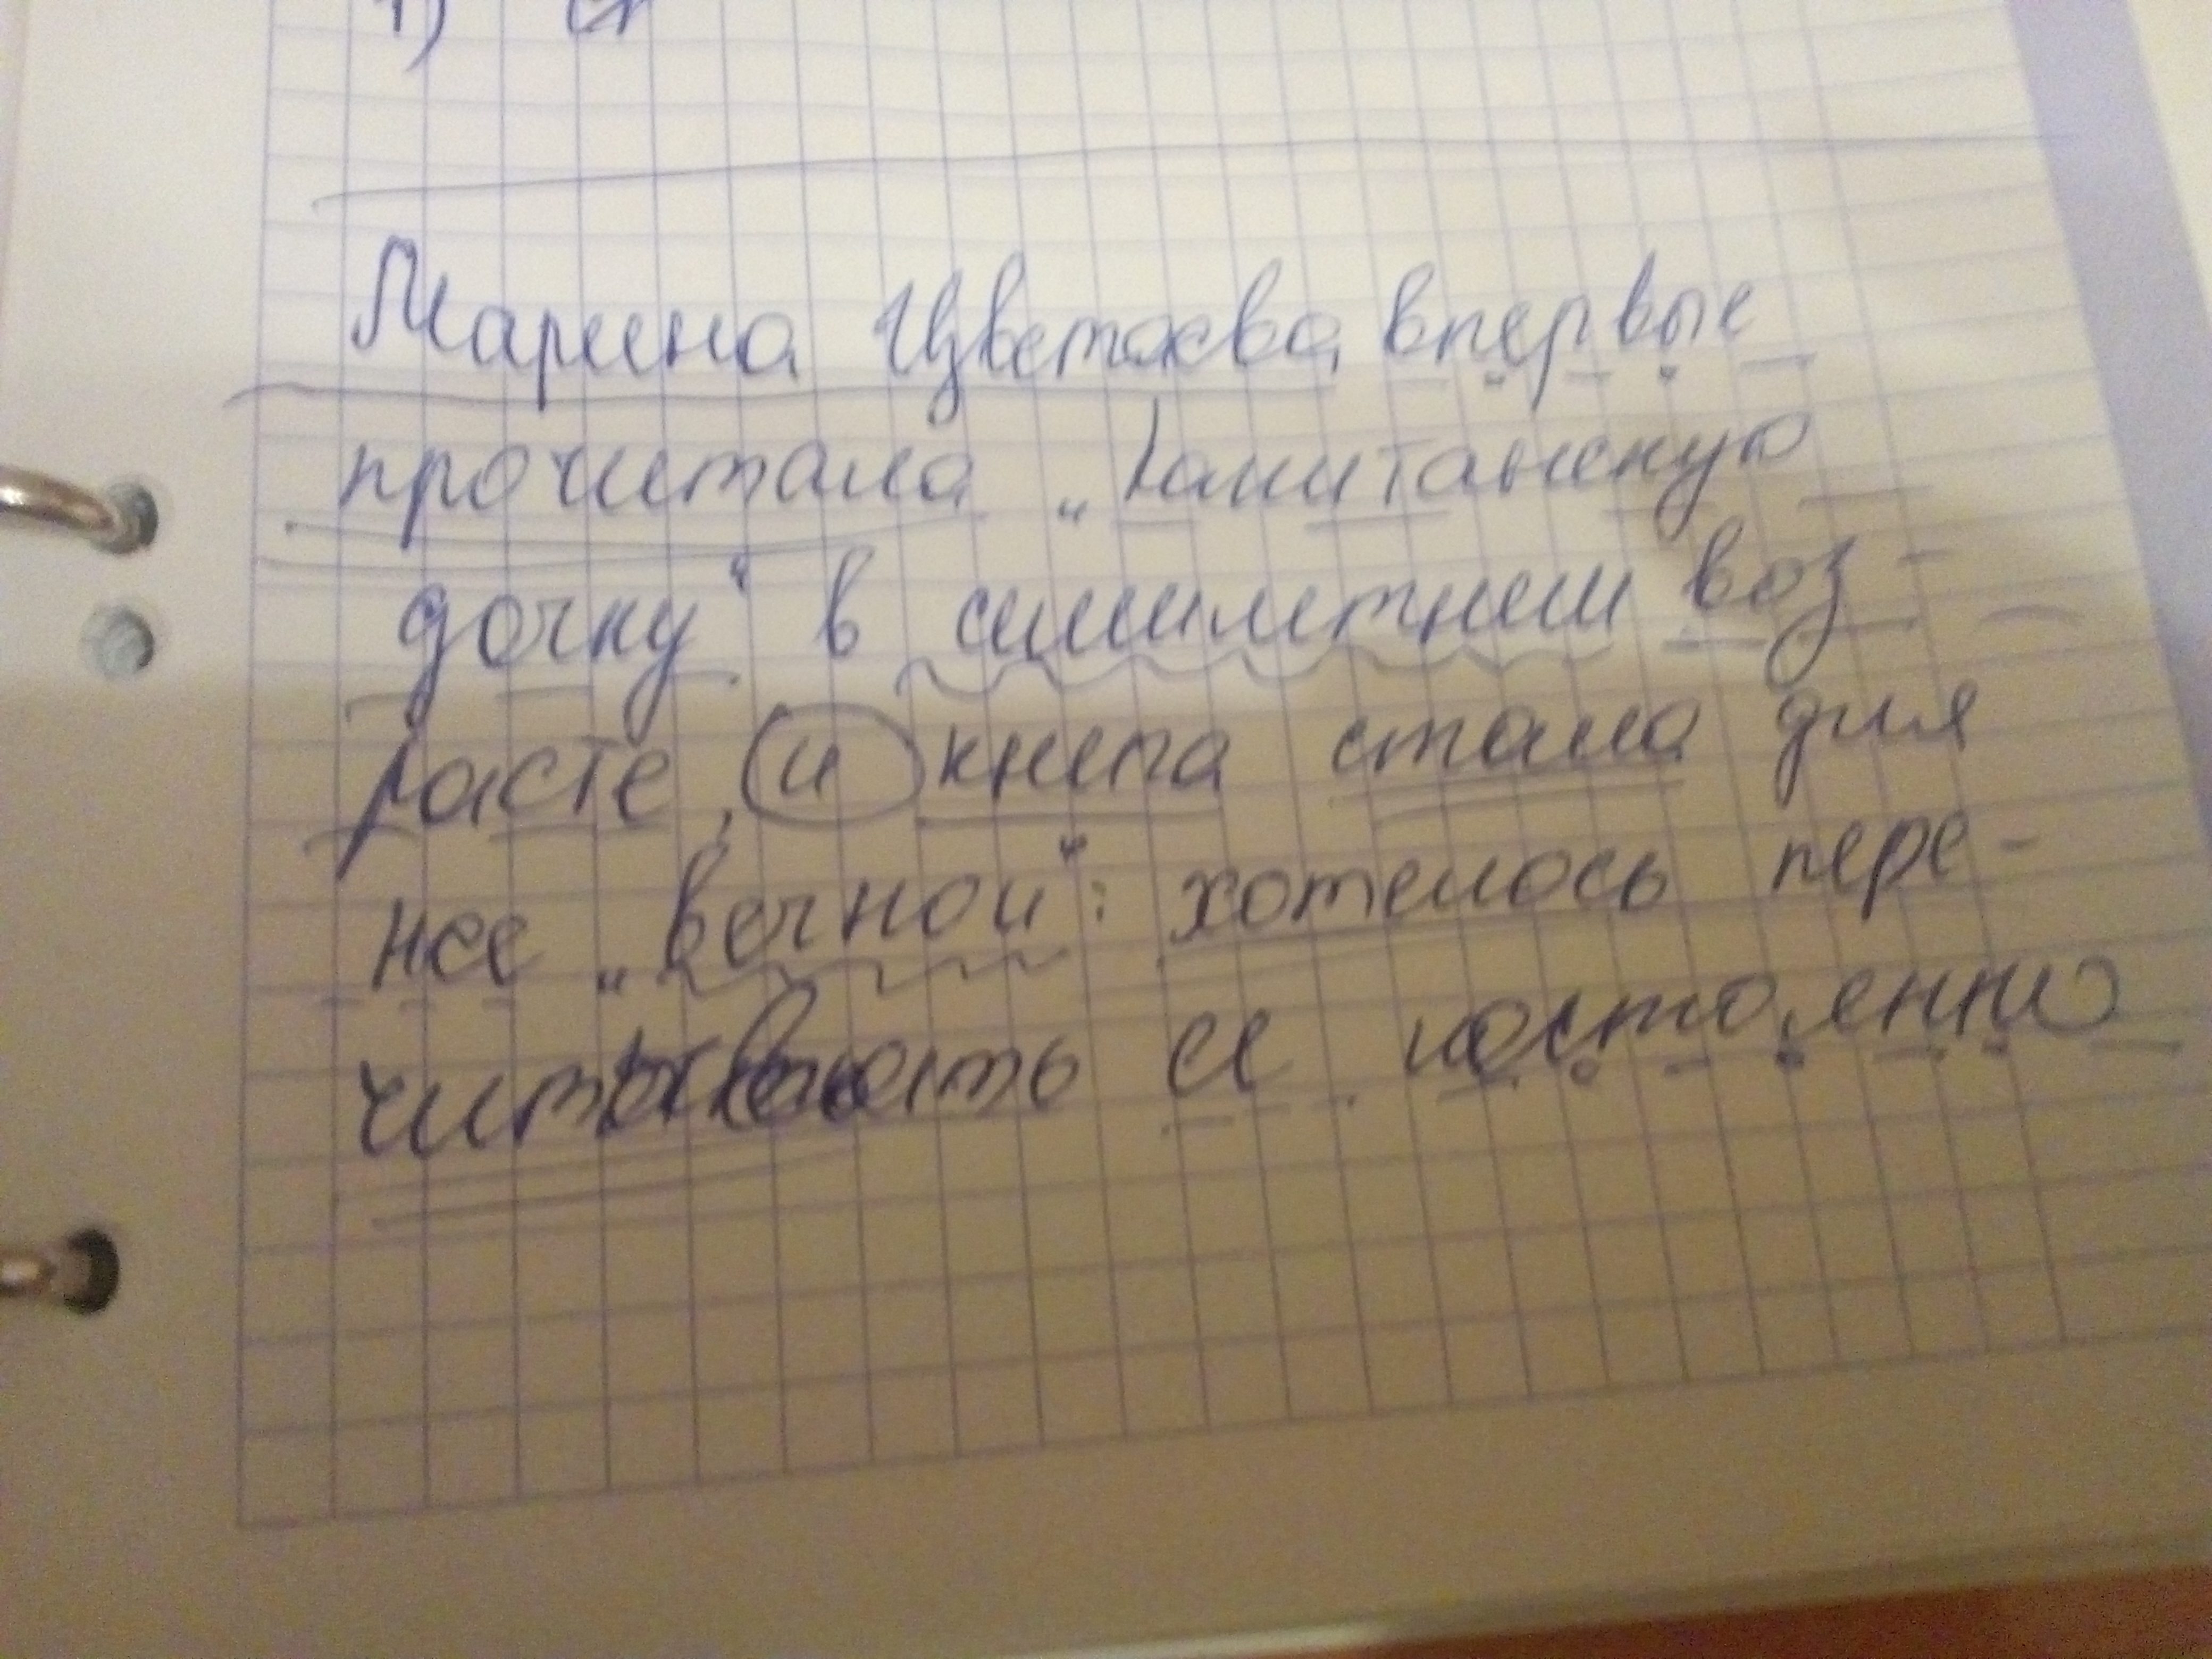 1)
Марина Цветаева впервые
прочитала „Капитанскую
дочку“ в семилетнем воз-
расте, и книга стала для
нее „вечной“: хотелось пере-
читывать ее постоянно